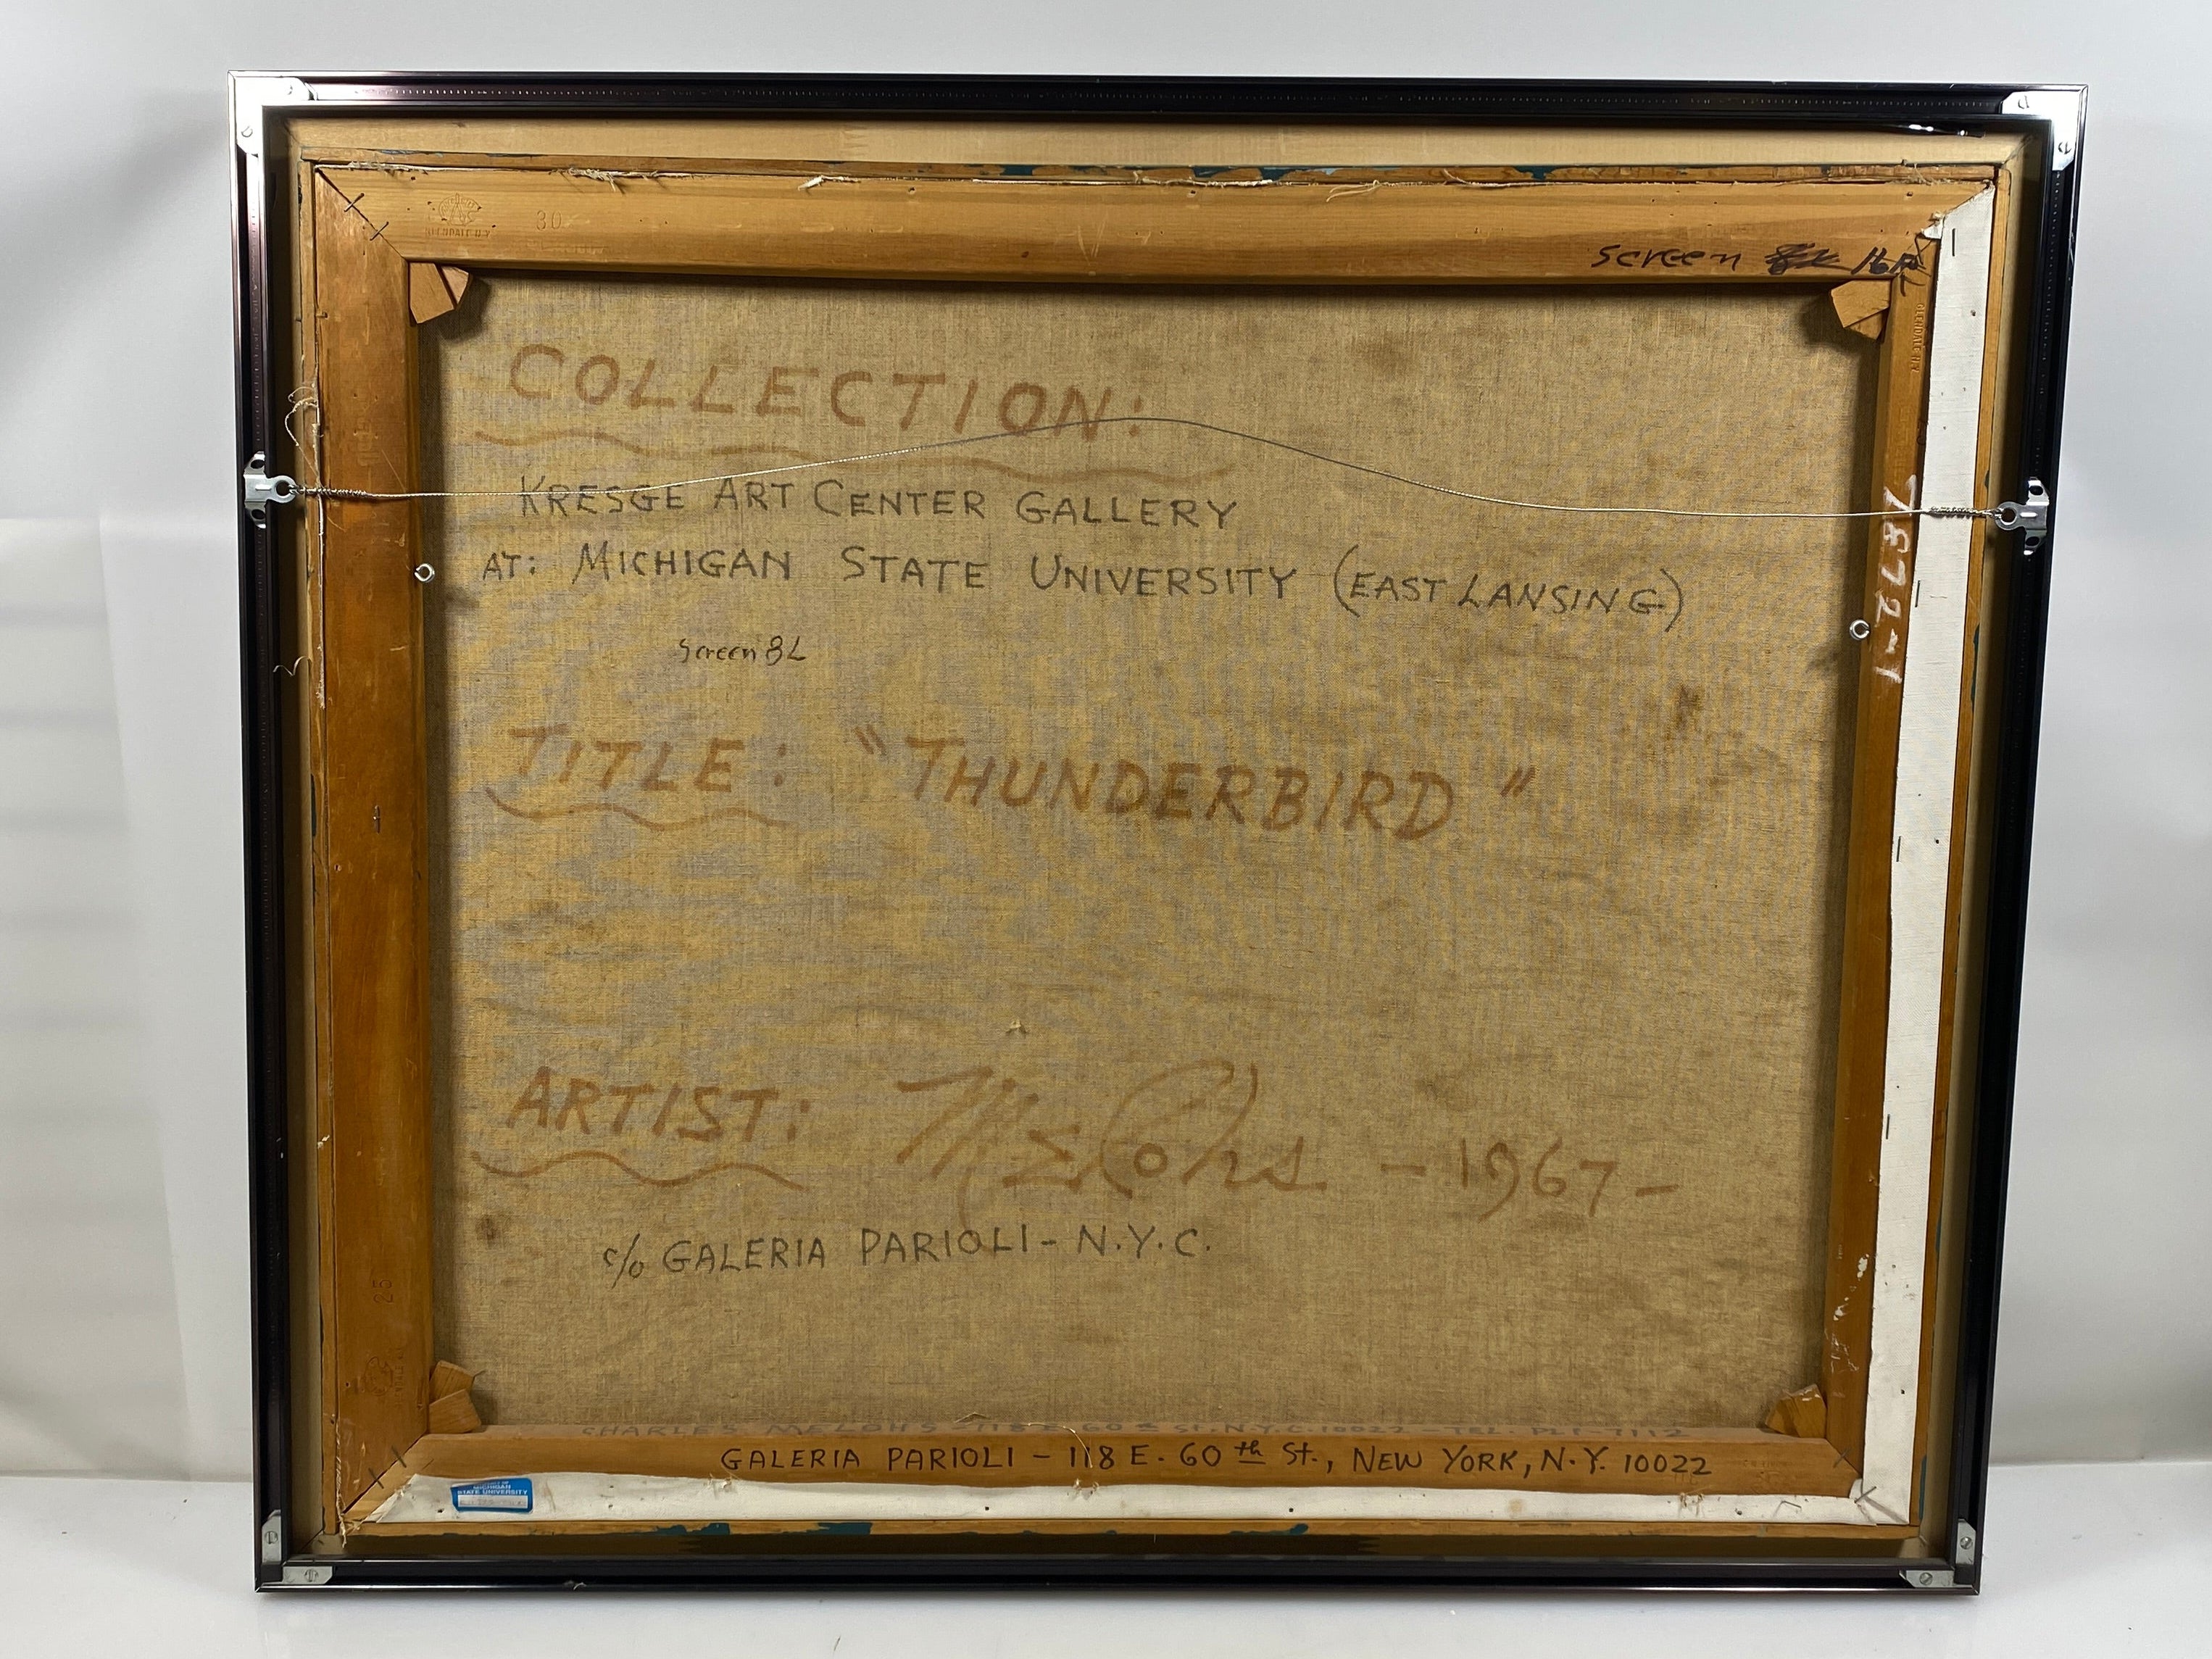 30
Screen 16R
COLLECTION:
KRESGE ART CENTER GALLERY
AT: MICHIGAN STATE UNIVERSITY (EAST LANSING)
Screen 8L
TITLE: "THUNDERBIRD"
ARTIST: Melohs - 1967 -
c/o GALERIA PARIOLI - N.Y.C.
25
CHARLES MELOHS - 118 E. 60th St. N.Y.C. 10022 - TEL. PL1-7112
GALERIA PARIOLI - 118 E. 60th St., NEW YORK, N.Y. 10022
MICHIGAN
STATE UNIVERSITY